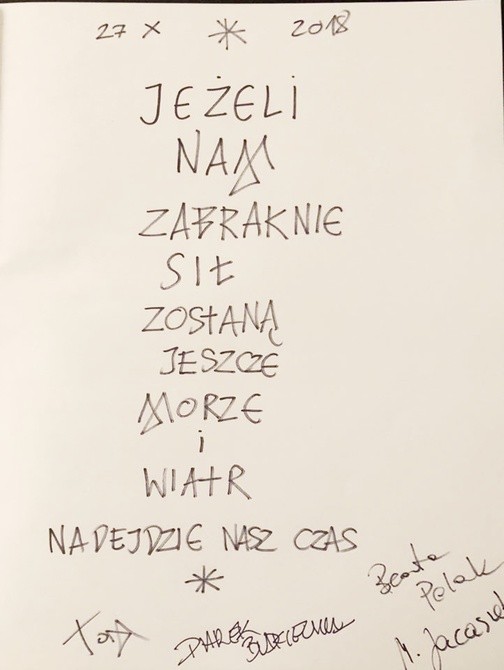 27 X * 2018
JEŻELI
NAM
ZABRAKNIE
SIŁ
ZOSTANĄ
JESZCZE
MORZE
i
WIATR
NADEJDZIE NASZ CZAS
*
Beata
Polak
DAREK
M.